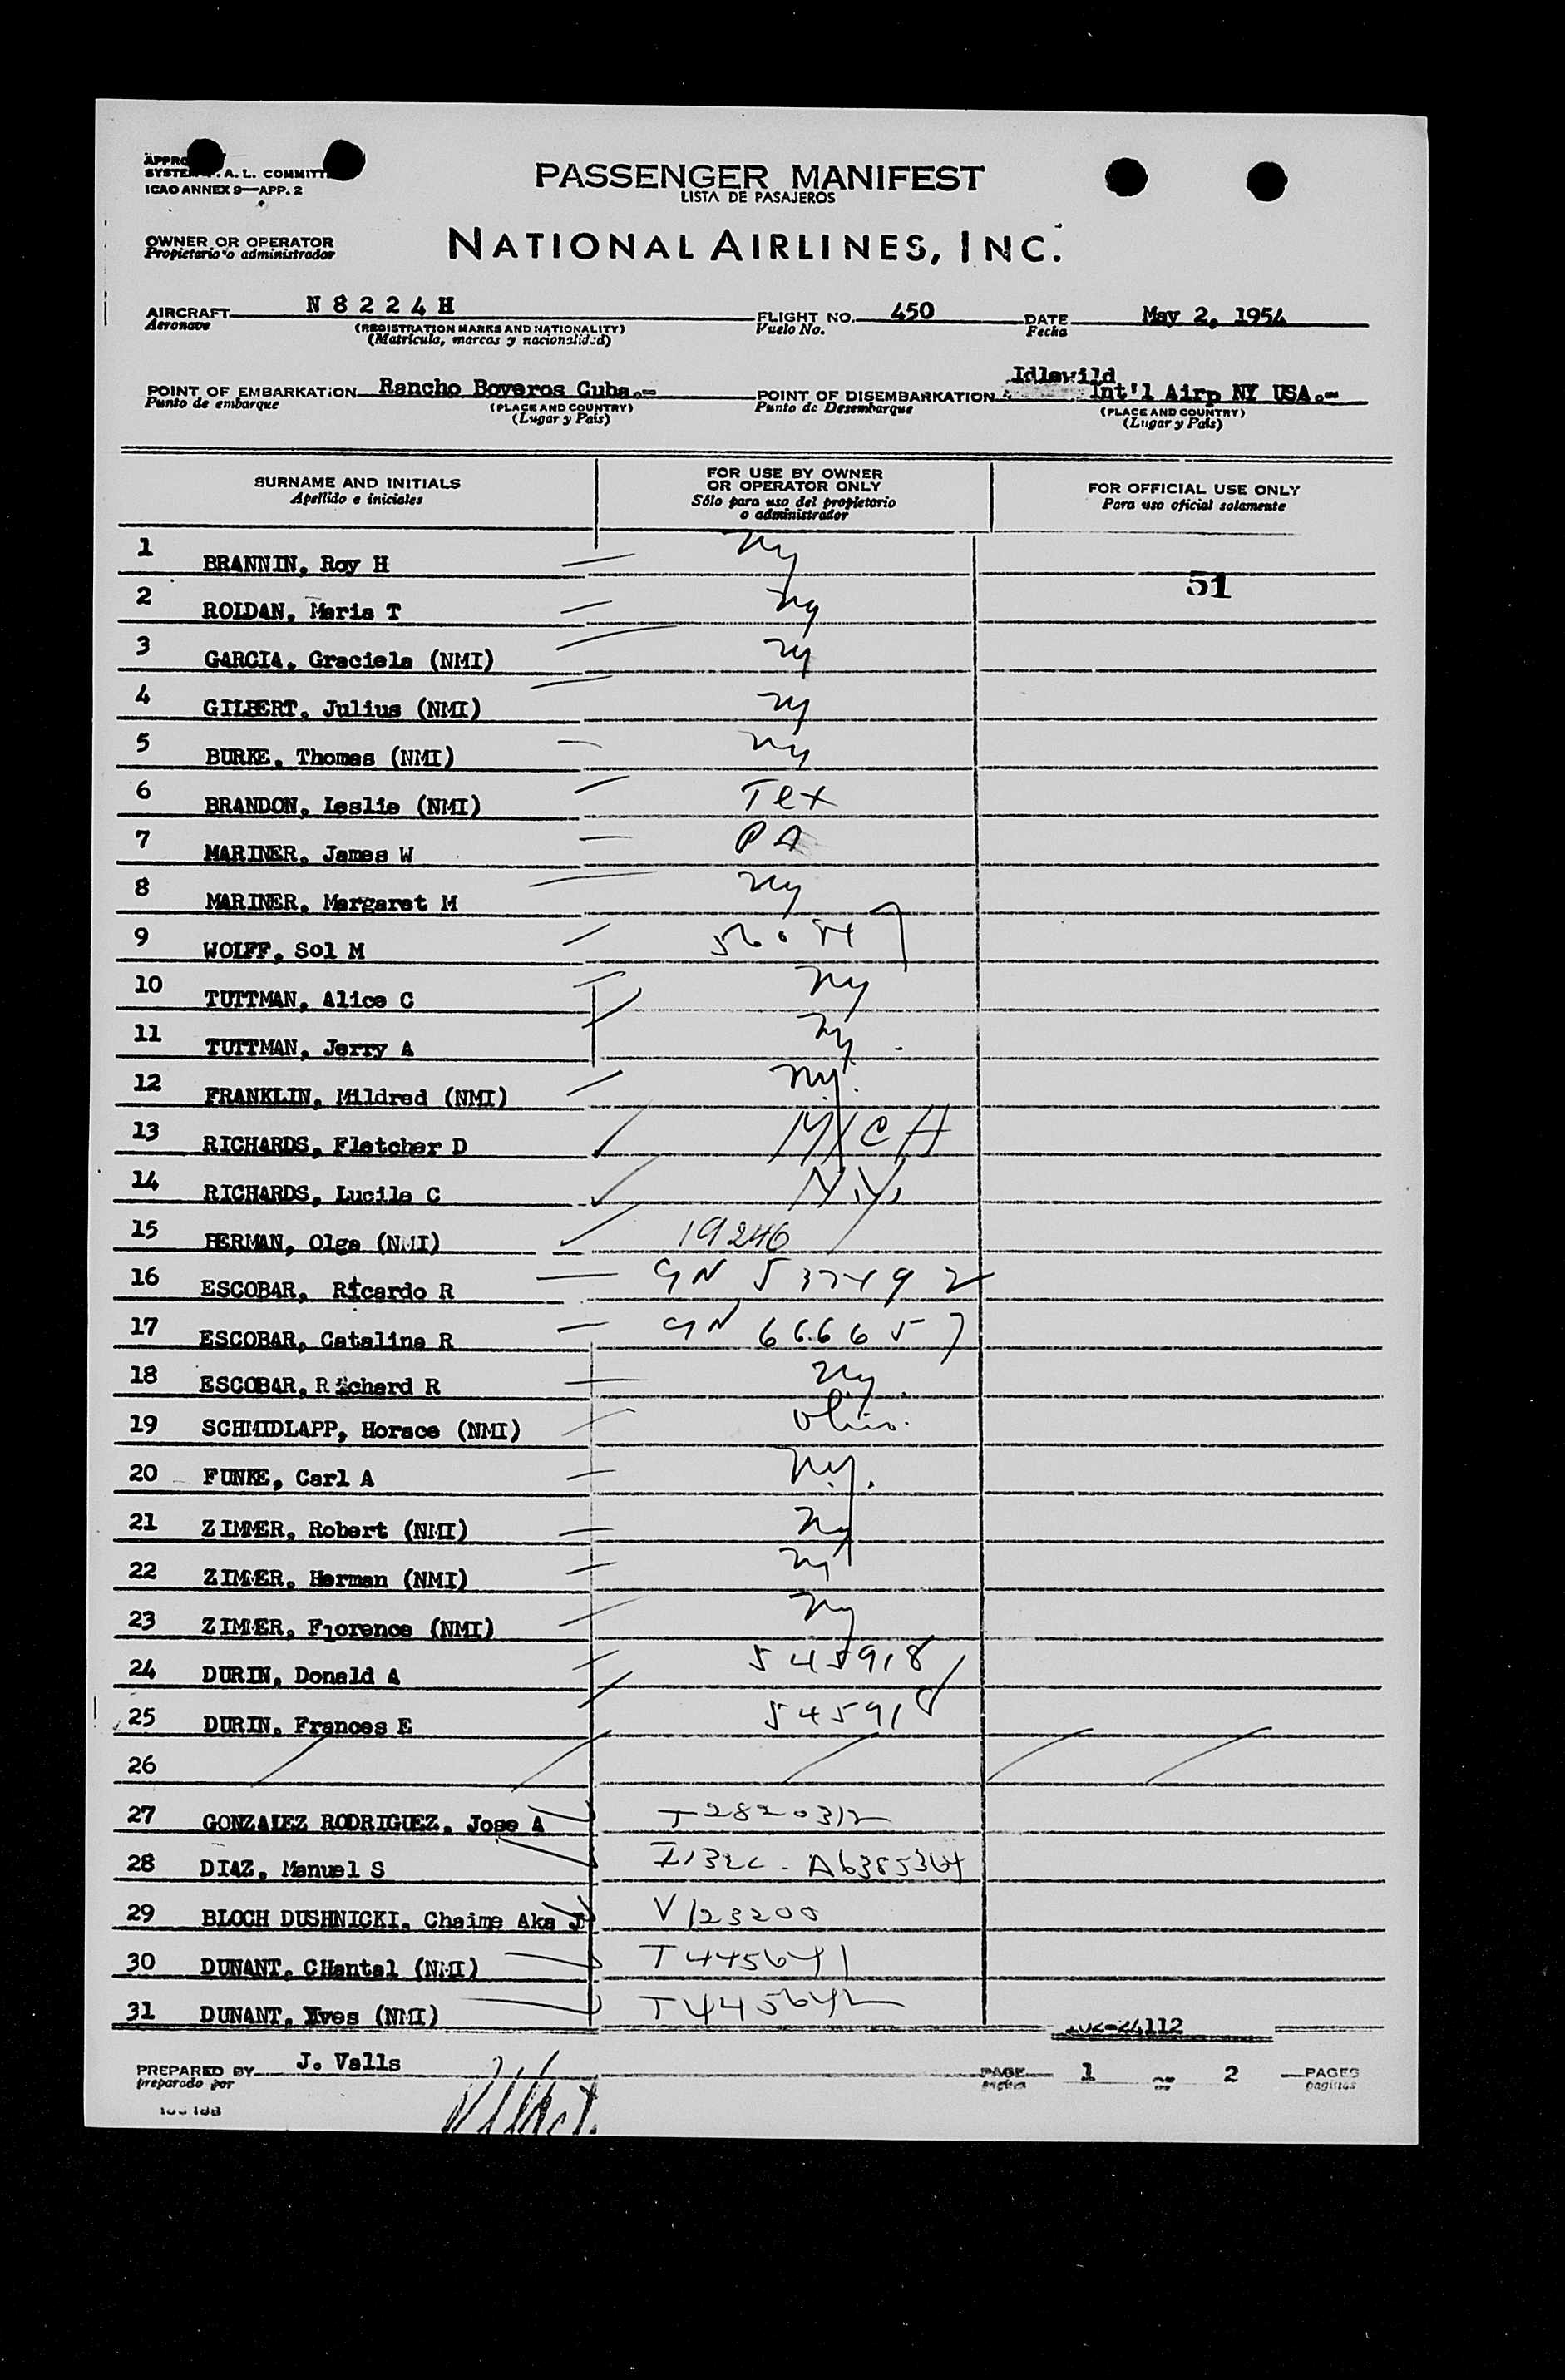 SYSTEM A. L. COMMITT
ICAO ANNEX 9—APP. 2
PASSENGER MANIFEST
LISTA DE PASAJEROS
OWNER OR OPERATOR
Propietario o administrador
NATIONAL AIRLINES, INC.
AIRCRAFT N 8 2 2 4 H FLIGHT NO. 450 DATE May 2, 1954
Aeronave (REGISTRATION MARKS AND NATIONALITY) Vuelo No. Fecha
(Matricula, marcas y nacionalidad)
Idlewild
POINT OF EMBARKATION Rancho Boyeros Cuba.= POINT OF DISEMBARKATION Int'l Airp NY USA.=
Punto de embarque (PLACE AND COUNTRY) Punto de Desembarque (PLACE AND COUNTRY)
(Lugar y País) (Lugar y País)
SURNAME AND INITIALS FOR USE BY OWNER OR OPERATOR ONLY FOR OFFICIAL USE ONLY
Apellido e iniciales Sólo para uso del propietario o administrador Para uso oficial solamente
1 BRANNIN, Roy H Ny
51
2 ROLDAN, Maria T Ny
3 GARCIA, Graciela (NMI) Ny
4 GILBERT, Julius (NMI) Ny
5 BURKE, Thomas (NMI) Ny
6 BRANDON, Leslie (NMI) Tex
7 MARINER, James W PA
8 MARINER, Margaret M Ny
9 WOLFF, Sol M
10 TUTTMAN, Alice C Ny
11 TUTTMAN, Jerry A Ny.
12 FRANKLIN, Mildred (NMI) Ny.
13 RICHARDS, Fletcher D MICH
14 RICHARDS, Lucile C N.Y.
15 BERMAN, Olga (NMI) 19246
16 ESCOBAR, Ricardo R
17 ESCOBAR, Catalina R 666657
18 ESCOBAR, Richard R Ny.
19 SCHMIDLAPP, Horace (NMI) Ohio.
20 FUNKE, Carl A Ny.
21 ZIMMER, Robert (NMI) Ny
22 ZIMMER, Herman (NMI) Ny
23 ZIMMER, Florence (NMI) Ny
24 DURIN, Donald A 545918
25 DURIN, Frances E 545918
26
27 GONZALEZ RODRIGUEZ, Jose A T2820312
28 DIAZ, Manuel S A6385364
29 BLOCH DUSHNICKI, Chaime Aka J V123200
30 DUNANT, CHantal (NMI) T445641
31 DUNANT, Yves (NMI) T445642
24112
PREPARED BY J. Valls PAGE 1 2 PAGES
preparado por paginas